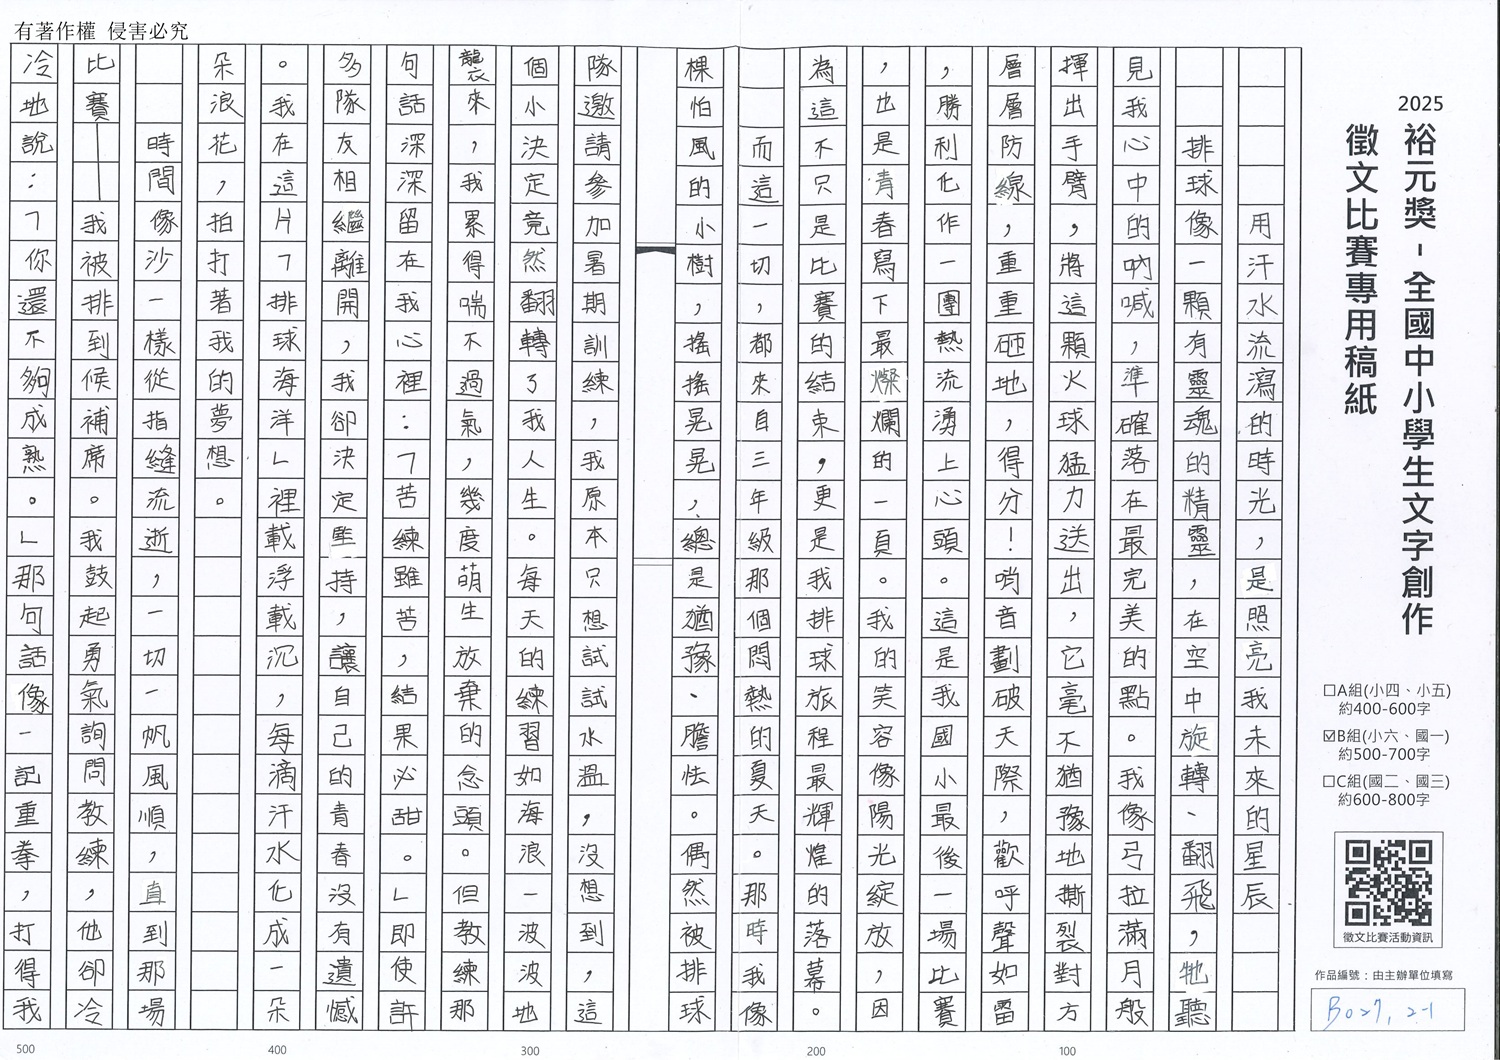 有著作權 侵害必究
2025
裕元獎-全國中小學生文字創作
徵文比賽專用稿紙
□A組(小四、小五)
約400-600字
☑B組(小六、國一)
約500-700字
□C組(國二、國三)
約600-800字
徵文比賽活動資訊
作品編號:由主辦單位填寫
B027, 2-1
用汗水流瀉的時光,是照亮我未來的星辰
排球像一顆有靈魂的精靈,在空中旋轉、翻飛,牠聽
見我心中的吶喊,準確落在最完美的點。我像弓拉滿月般
揮出手臂,將這顆火球猛力送出,它毫不猶豫地撕裂對方
層層防線,重重砸地,得分!哨音劃破天際,歡呼聲如雷
,勝利化作一團熱流湧上心頭。這是我國小最後一場比賽
,也是青春寫下最燦爛的一頁。我的笑容像陽光綻放,因
為這不只是比賽的結束,更是我排球旅程最輝煌的落幕。
而這一切,都來自三年級那個悶熱的夏天。那時我像
棵怕風的小樹,搖搖晃晃,總是猶豫、膽怯。偶然被排球
隊邀請參加暑期訓練,我原本只想試試水溫,沒想到,這
個小決定竟然翻轉了我人生。每天的練習如海浪一波波地
襲來,我累得喘不過氣,幾度萌生放棄的念頭。但教練那
句話深深留在我心裡:「苦練雖苦,結果必甜。」即使許
多隊友相繼離開,我卻決定堅持,讓自己的青春沒有遺憾
。我在這片「排球海洋」裡載浮載沉,每滴汗水化成一朵
朵浪花,拍打著我的夢想。
時間像沙一樣從指縫流逝,一切一帆風順,直到那場
比賽——我被排到候補席。我鼓起勇氣詢問教練,他卻冷
冷地說:「你還不夠成熟。」那句話像一記重拳,打得我
500
400
300
200
100